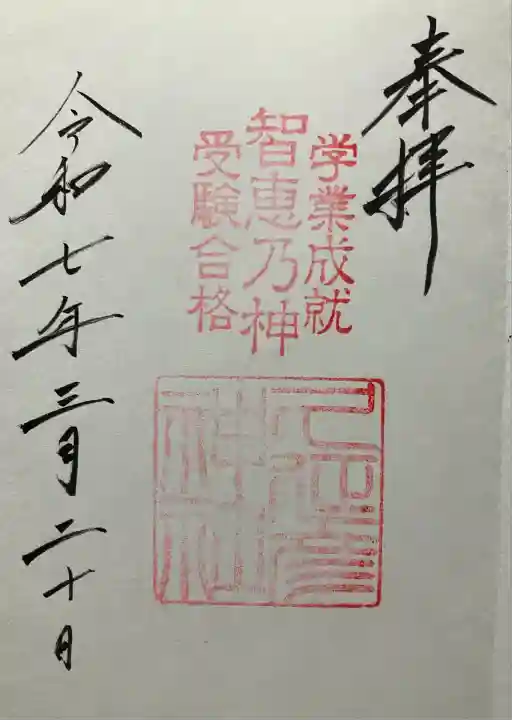 奉拝
学業成就
智恵乃神
受験合格
久延彦
神社
令和七年三月二十日